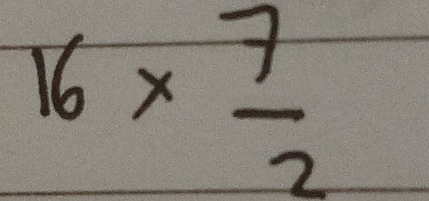 16 × 7/2